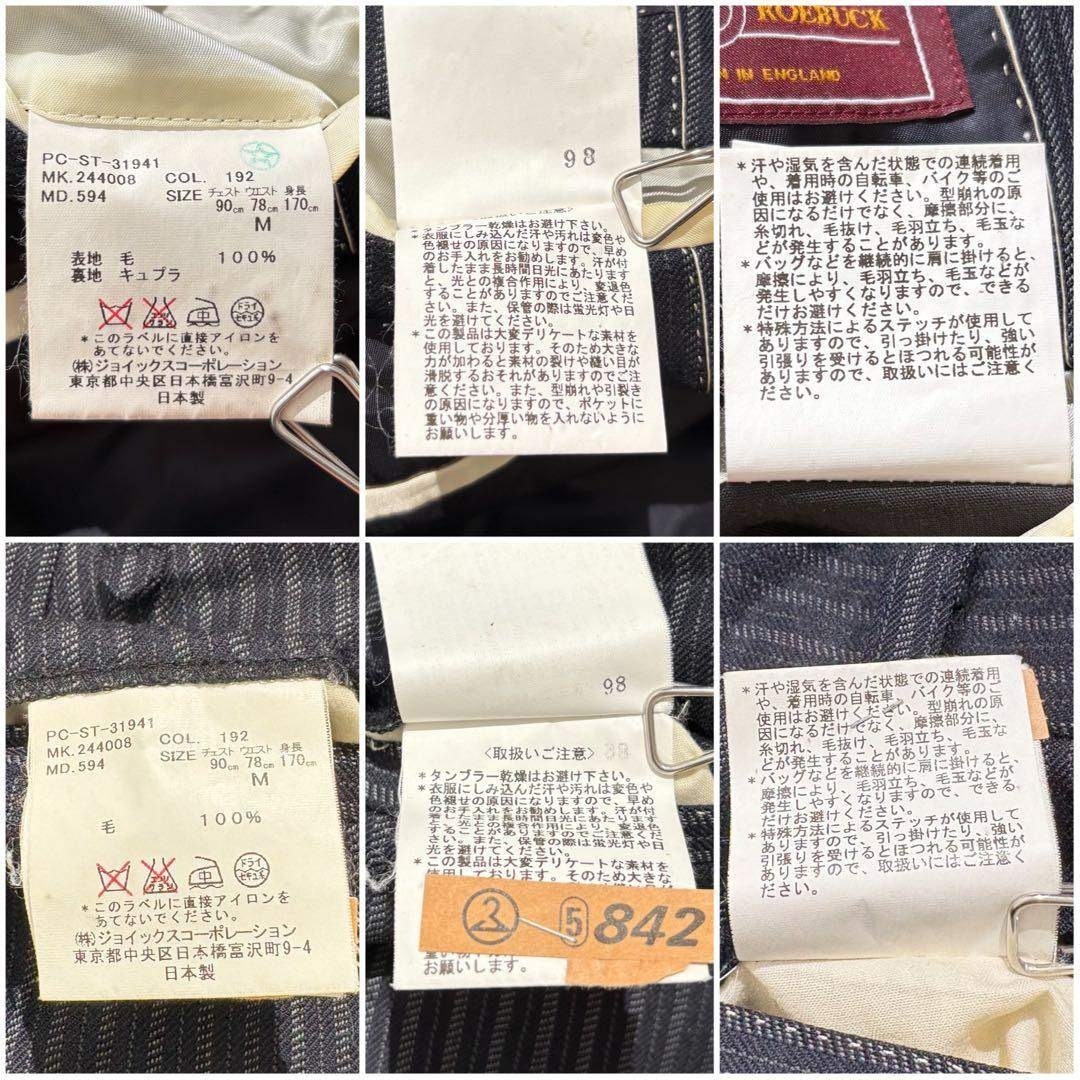 PC-ST-31941
MK.244008 COL. 192
MD.594 SIZE チェスト ウエスト 身長
90cm 78cm 170cm
M
表地 毛 100%
裏地 キュプラ
エンソ
クラン
ドライ
セキユ系
*このラベルに直接アイロンを
あてないでください。
(株)ジョイックスコーポレーション
東京都中央区日本橋富沢町9-4
日本製
98
取扱いご注意>
タンブラー乾燥はお避け下さい。
*衣服にしみ込んだ汗や汚れは変色や
色褪せの原因になりますので、早め
のお手入れをお勧めします。汗が付
着したまま長時間日光にあたります
と、光との複合作用により、変退色
することがありますのでご注意くだ
さい。また、保管の際は蛍光灯や日
光を避けてください。
*この製品は大変デリケートな素材を
使用しております。そのため大きな
力が加わると素材の裂けや縫い目が
滑脱するおそれがありますのでご注
意ください。また、型崩れや引裂き
の原因になりますので、ポケットに
重い物や分厚い物を入れないように
お願いします。
ROEBUCK
IN ENGLAND
*汗や湿気を含んだ状態での連続着用
や、着用時の自転車、バイク等のご
使用はお避けください。型崩れの原
因になるだけでなく、摩擦部分に、
糸切れ、毛抜け、毛羽立ち、毛玉な
どが発生することがあります。
*バッグなどを継続的に肩に掛けると、
摩擦により、毛羽立ち、毛玉などが
発生しやすくなりますので、できる
だけお避けください。
*特殊方法によるステッチが使用して
ありますので、引っ掛けたり、強い
引張りを受けるとほつれる可能性が
ありますので、取扱いにはご注意く
ださい。
PC-ST-31941
MK.244008 COL. 192
MD.594 SIZE チェスト ウエスト 身長
90cm 78cm 170cm
M
毛 100%
エンソ
クラン
ドライ
セキユ系
*このラベルに直接アイロンを
あてないでください。
(株)ジョイックスコーポレーション
東京都中央区日本橋富沢町9-4
日本製
98
<取扱いご注意>
*タンブラー乾燥はお避け下さい。
*衣服にしみ込んだ汗や汚れは変色や
色褪せの原因になりますので、早め
のお手入れをお勧めします。汗が付
着したまま長時間日光にあたります
と、光との複合作用により、変退色
することがありますのでご注意くだ
さい。また、保管の際は蛍光灯や日
光を避けてください。
*この製品は大変デリケートな素材を
使用しております。そのため大きな
5 842
お願いします。
*汗や湿気を含んだ状態での連続着用
や、着用時の自転車、バイク等のご
使用はお避けください。型崩れの原
因になるだけでなく、摩擦部分に、
糸切れ、毛抜け、毛羽立ち、毛玉な
どが発生することがあります。
*バッグなどを継続的に肩に掛けると、
摩擦により、毛羽立ち、毛玉などが
発生しやすくなりますので、できる
だけお避けください。
*特殊方法によるステッチが使用して
ありますので、引っ掛けたり、強い
引張りを受けるとほつれる可能性が
ありますので、取扱いにはご注意く
ださい。